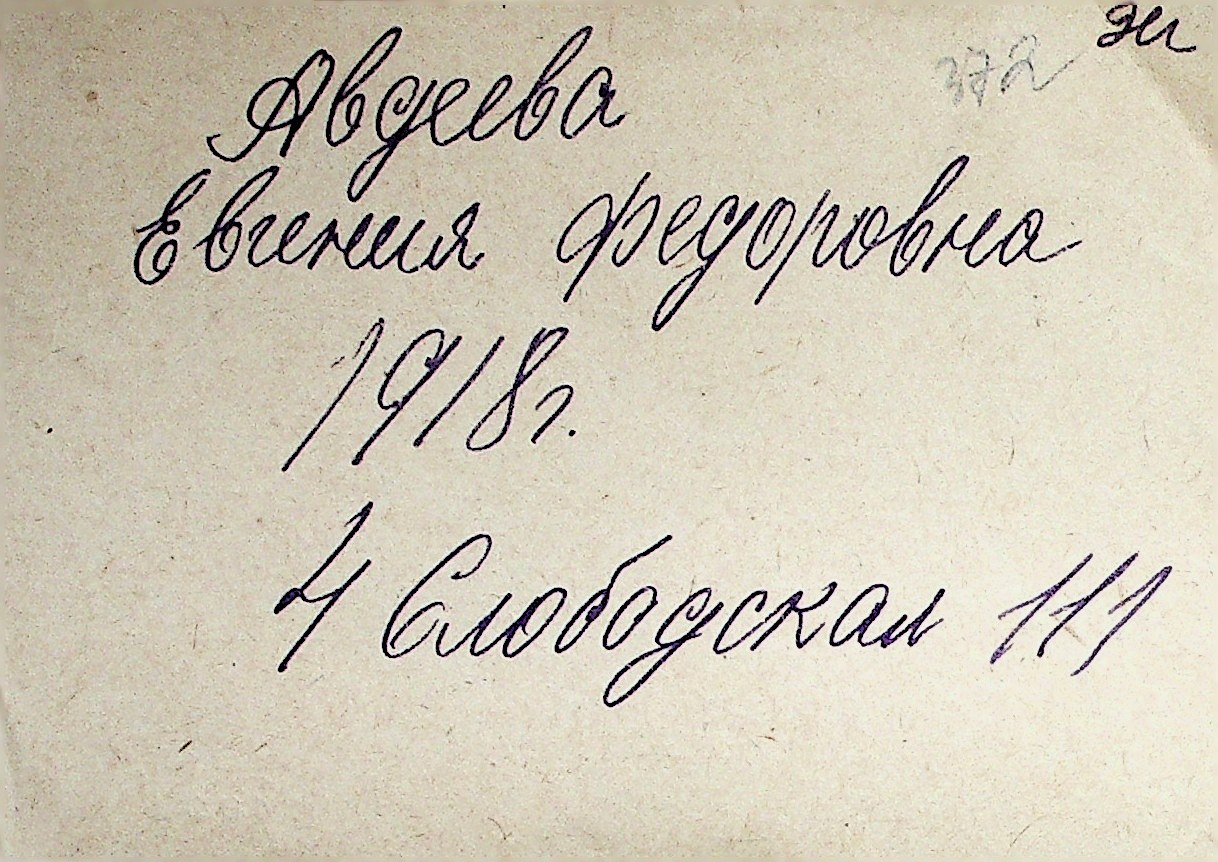 372 эк
Авдеева
Евгения Федоровна
1918г.
4 Слободская 111